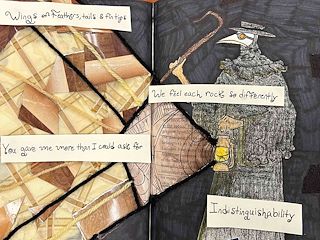 Wings on feathers, tails & fintips
We feel each rock so differently
You gave me more than I could ask for
Indistinguishability